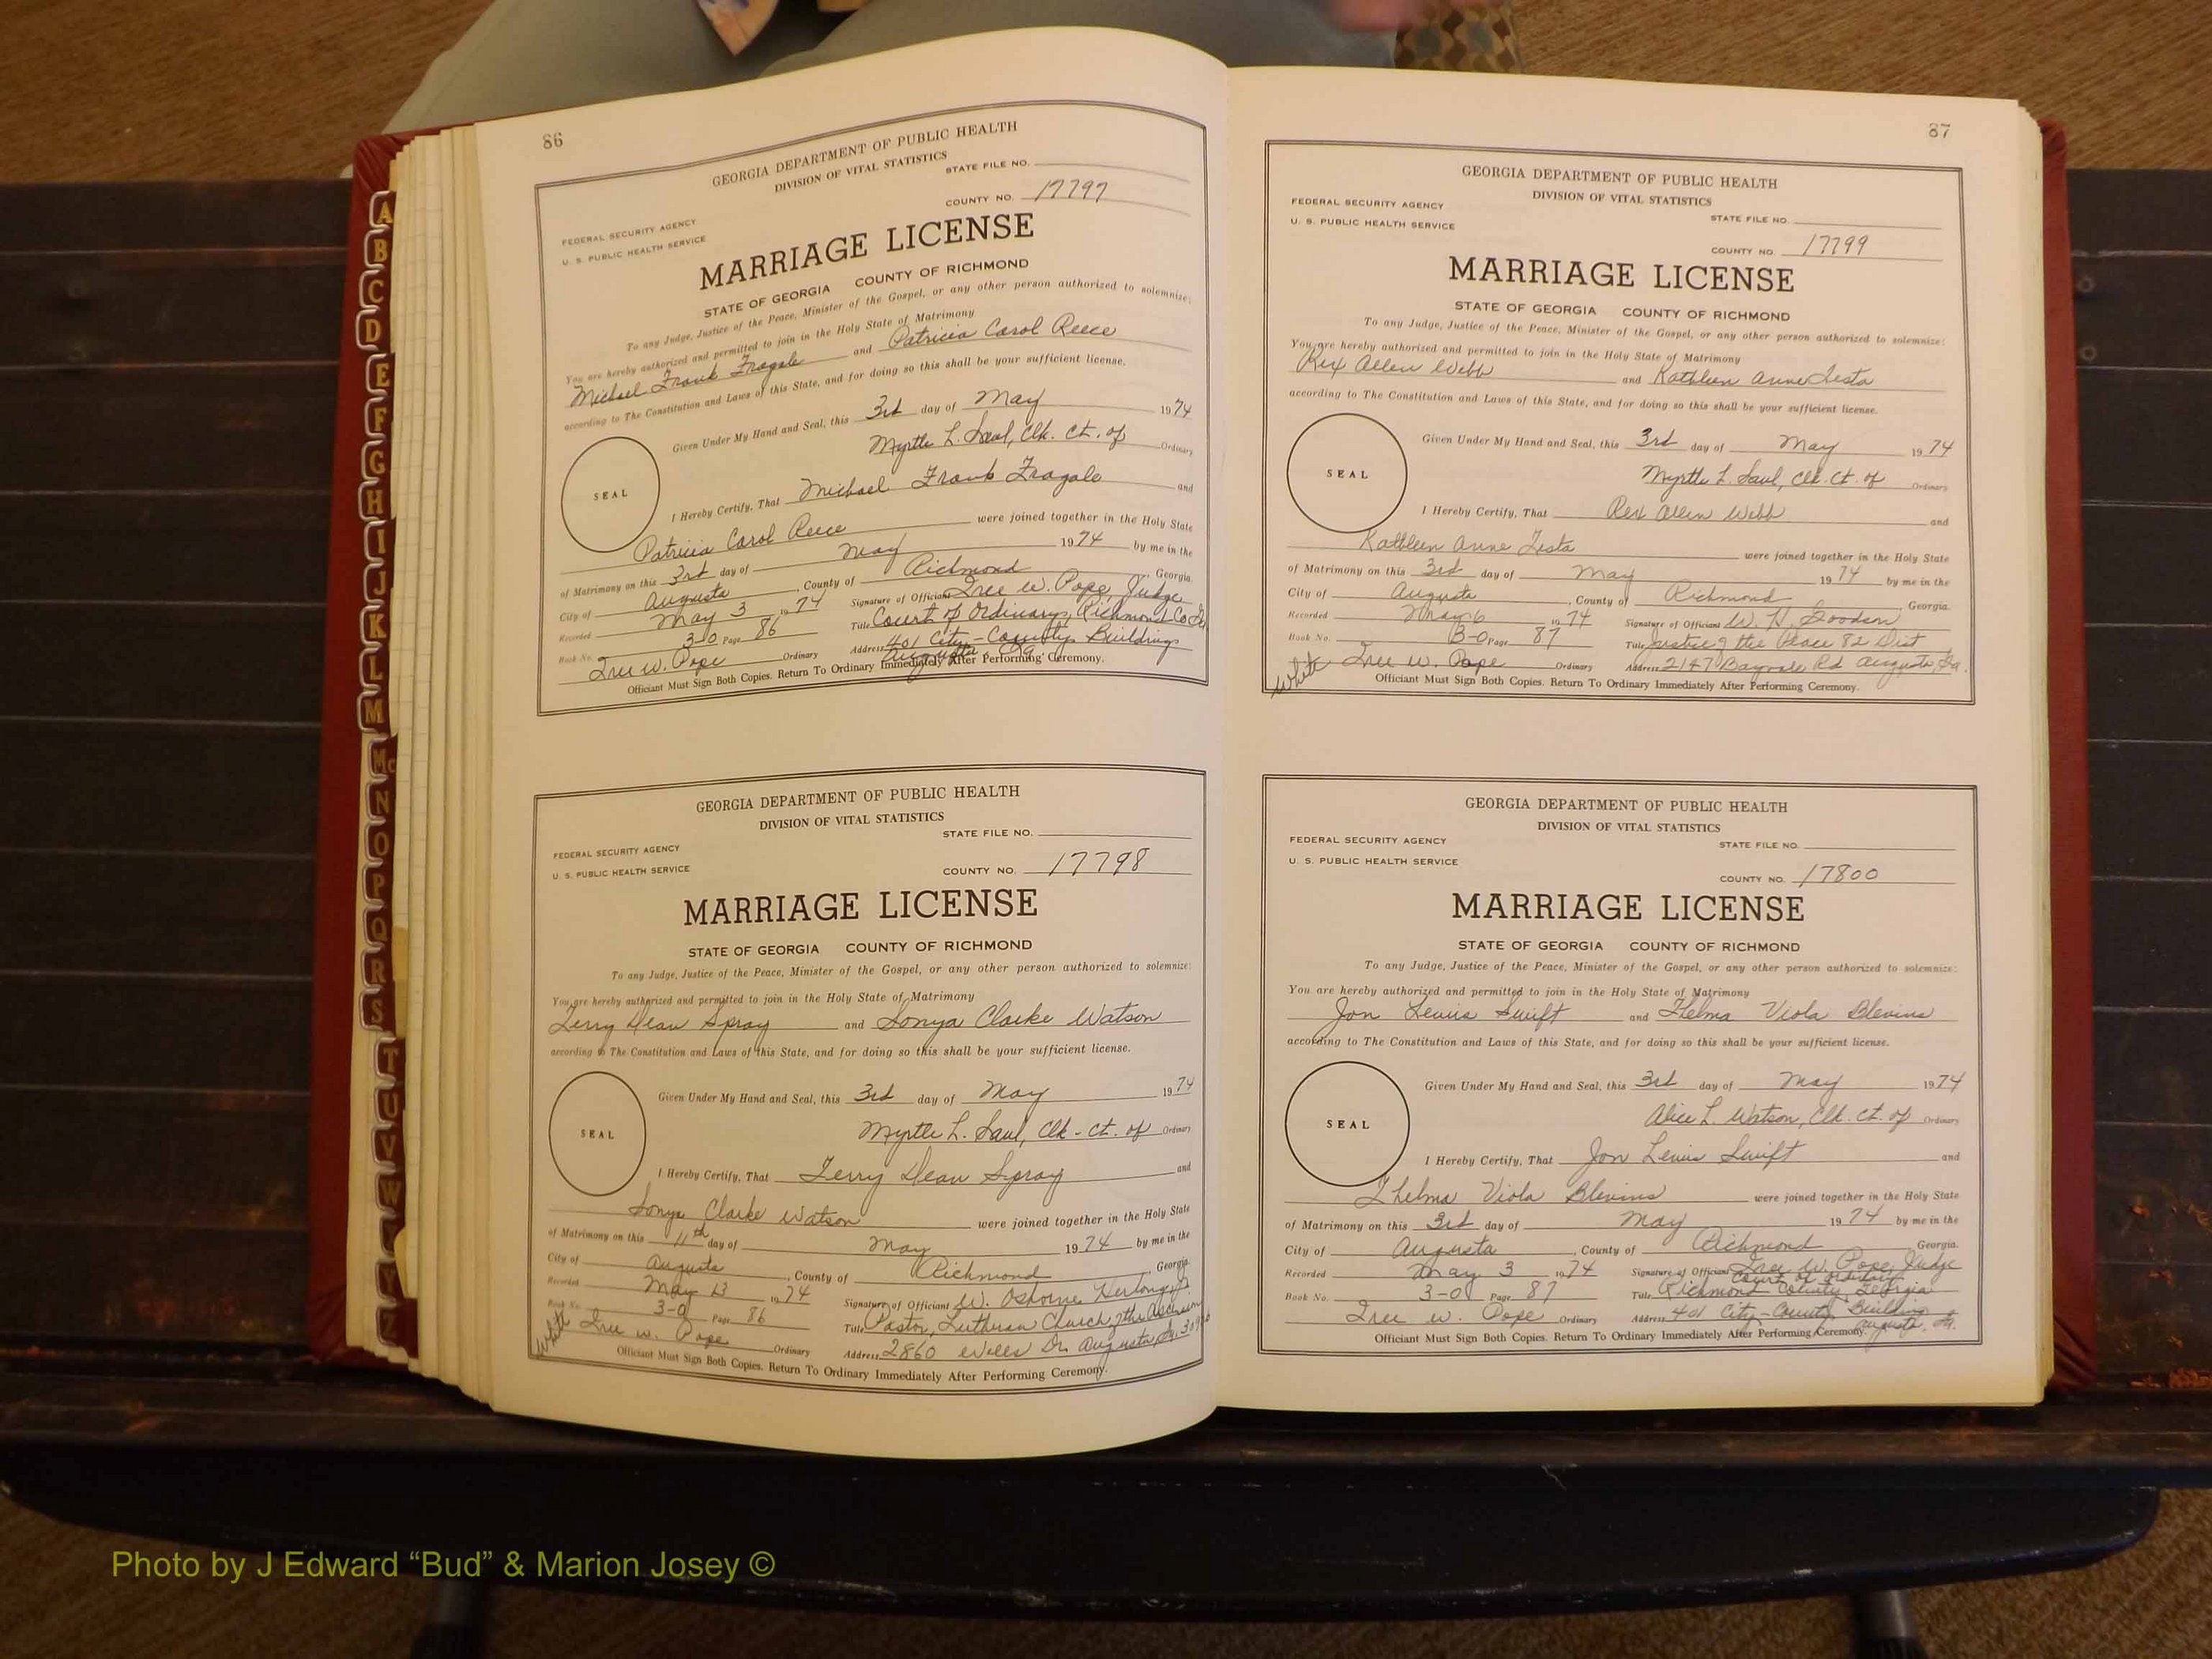 86
GEORGIA DEPARTMENT OF PUBLIC HEALTH
DIVISION OF VITAL STATISTICS
STATE FILE NO.
COUNTY NO. 17797
FEDERAL SECURITY AGENCY
U. S. PUBLIC HEALTH SERVICE
MARRIAGE LICENSE
STATE OF GEORGIA COUNTY OF RICHMOND
To any Judge, Justice of the Peace, Minister of the Gospel, or any other person authorized to solemnize:
You are hereby authorized and permitted to join in the Holy State of Matrimony
Michael Frank Fragale and Patricia Carol Reece
according to The Constitution and Laws of this State, and for doing so this shall be your sufficient license.
Given Under My Hand and Seal, this 3rd day of May 1974
Myrtle L. Saul, Clk. Ct. of Ordinary
SEAL
I Hereby Certify, That Michael Frank Fragale and
Patricia Carol Reece were joined together in the Holy State
of Matrimony on this 3rd day of May 1974 by me in the
City of Augusta, County of Richmond, Georgia.
Recorded May 3 1974 Signature of Officiant W. Pope, Judge
Book No. 3-O Page 86 Title Court of Ordinary, Richmond Co Ga
W. Pope Ordinary Address 401 City-County Building
Augusta, Ga
Officiant Must Sign Both Copies. Return To Ordinary Immediately After Performing Ceremony.
GEORGIA DEPARTMENT OF PUBLIC HEALTH
DIVISION OF VITAL STATISTICS
STATE FILE NO.
FEDERAL SECURITY AGENCY
U. S. PUBLIC HEALTH SERVICE
COUNTY NO. 17798
MARRIAGE LICENSE
STATE OF GEORGIA COUNTY OF RICHMOND
To any Judge, Justice of the Peace, Minister of the Gospel, or any other person authorized to solemnize:
You are hereby authorized and permitted to join in the Holy State of Matrimony
Terry Dean Spray and Sonya Clarke Watson
according to The Constitution and Laws of this State, and for doing so this shall be your sufficient license.
Given Under My Hand and Seal, this 3rd day of May 1974
Myrtle L. Saul, Clk-Ct. of Ordinary
SEAL
I Hereby Certify, That Terry Dean Spray and
Sonya Clarke Watson were joined together in the Holy State
of Matrimony on this 11th day of May 1974 by me in the
City of Augusta, County of Richmond, Georgia.
Recorded May 13 1974 Signature of Officiant W. Osborne Herlong Jr.
Book No. 3-O Page 86 Title Pastor, Lutheran Church of the Ascension
White W. Pope Ordinary Address 2860 Dr. Augusta, Ga.
Officiant Must Sign Both Copies. Return To Ordinary Immediately After Performing Ceremony.
87
GEORGIA DEPARTMENT OF PUBLIC HEALTH
DIVISION OF VITAL STATISTICS
FEDERAL SECURITY AGENCY
U. S. PUBLIC HEALTH SERVICE
STATE FILE NO.
COUNTY NO. 17799
MARRIAGE LICENSE
STATE OF GEORGIA COUNTY OF RICHMOND
To any Judge, Justice of the Peace, Minister of the Gospel, or any other person authorized to solemnize:
You are hereby authorized and permitted to join in the Holy State of Matrimony
Rex Allen Webb and Kathleen Anne Testa
according to The Constitution and Laws of this State, and for doing so this shall be your sufficient license.
Given Under My Hand and Seal, this 3rd day of May 1974
Myrtle L. Saul, Clk. Ct. of Ordinary
SEAL
I Hereby Certify, That Rex Allen Webb and
Kathleen Anne Testa were joined together in the Holy State
of Matrimony on this 3rd day of May 1974 by me in the
City of Augusta, County of Richmond, Georgia.
Recorded May 6 1974 Signature of Officiant W. H. Goodson
Book No. 3-O Page 87 Title Justice of the Peace 82 Dist
White W. Pope Ordinary Address 2147 Bayvale Rd Augusta, Ga.
Officiant Must Sign Both Copies. Return To Ordinary Immediately After Performing Ceremony.
GEORGIA DEPARTMENT OF PUBLIC HEALTH
DIVISION OF VITAL STATISTICS
FEDERAL SECURITY AGENCY
STATE FILE NO.
U. S. PUBLIC HEALTH SERVICE
COUNTY NO. 17800
MARRIAGE LICENSE
STATE OF GEORGIA COUNTY OF RICHMOND
To any Judge, Justice of the Peace, Minister of the Gospel, or any other person authorized to solemnize:
You are hereby authorized and permitted to join in the Holy State of Matrimony
Jon Lewis Swift and Thelma Viola Blevins
according to The Constitution and Laws of this State, and for doing so this shall be your sufficient license.
Given Under My Hand and Seal, this 3rd day of May 1974
Alice L. Watson, Clk. Ct. of Ordinary
SEAL
I Hereby Certify, That Jon Lewis Swift and
Thelma Viola Blevins were joined together in the Holy State
of Matrimony on this 3rd day of May 1974 by me in the
City of Augusta, County of Richmond, Georgia.
Recorded May 3 1974 Signature of Officiant W. Pope, Judge
Court of Ordinary
Book No. 3-O Page 87 Title Richmond County, Georgia
W. Pope Ordinary Address 401 City-County Building
Augusta, Ga.
Officiant Must Sign Both Copies. Return To Ordinary Immediately After Performing Ceremony.
A
B
C
D
E
F
G
H
I
J
K
L
M
Mc
N
O
P
Q
R
S
T
U
V
W
Y
Z
Photo by J Edward “Bud” & Marion Josey ©